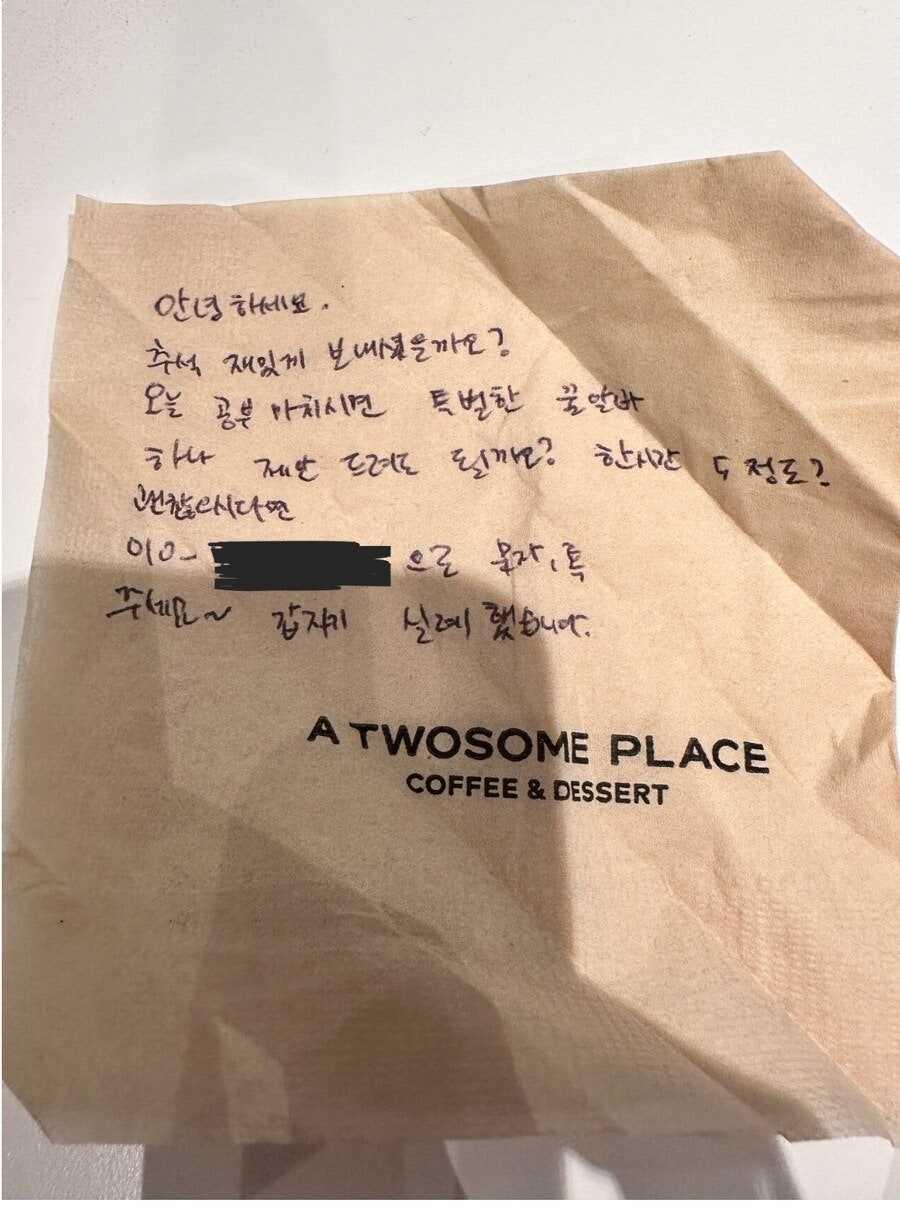 안녕하세요.
추석 재밌게 보내셨을까요?
오늘 공부 마치시면 특별한 꿀알바
하나 제안 드려도 될까요? 한시간 정도?
괜찮으시다면
010-
으로 문자, 톡
주세요~ 갑자기 실례했습니다.
A TWOSOME PLACE
COFFEE & DESSERT